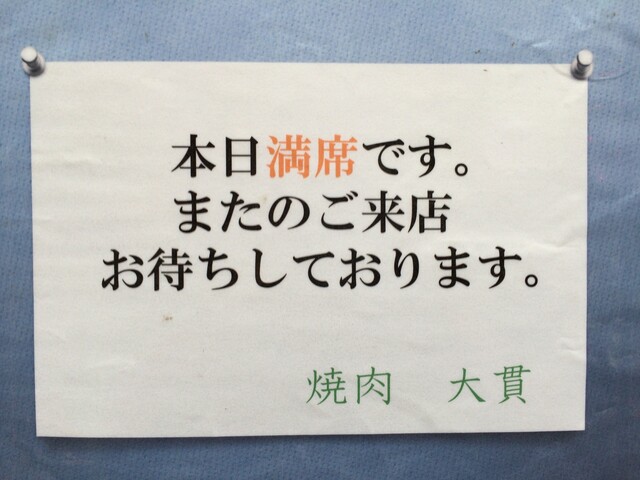 本日満席です。
またのご来店
お待ちしております。
焼肉　大貫